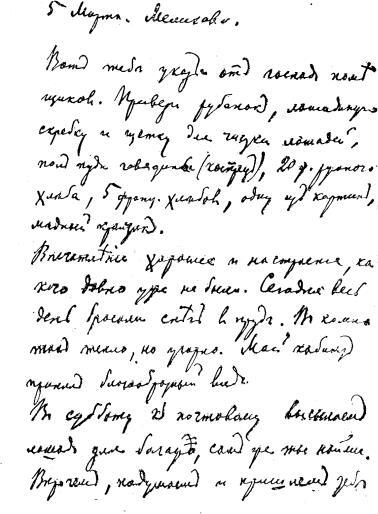 5 Марта. Мелихово.
Вотъ тебѣ указъ отъ господъ помѣ
щиковъ. Привези рубанокъ, лошадиную
скребку и щетку для чистки лошадей,
полъ пуда говядины (кострец), 20 ф. ржаного
хлѣба, 5 франц. хлѣбовъ, одну изъ картинъ,
мѣдный
Впечатлѣніе хорошее и настроеніе, ка
кого давно уже не было. Сегодня весь
день бросали снѣгъ в прудъ. В комна
тахъ тепло, но угарно. Мой кабинетъ
принялъ благообразный видъ.
Въ субботу къ почтовому высылаемъ
лошадь для багажа, самъ же ты найми.
Впрочемъ, подумаемъ и пришлемъ тебѣ